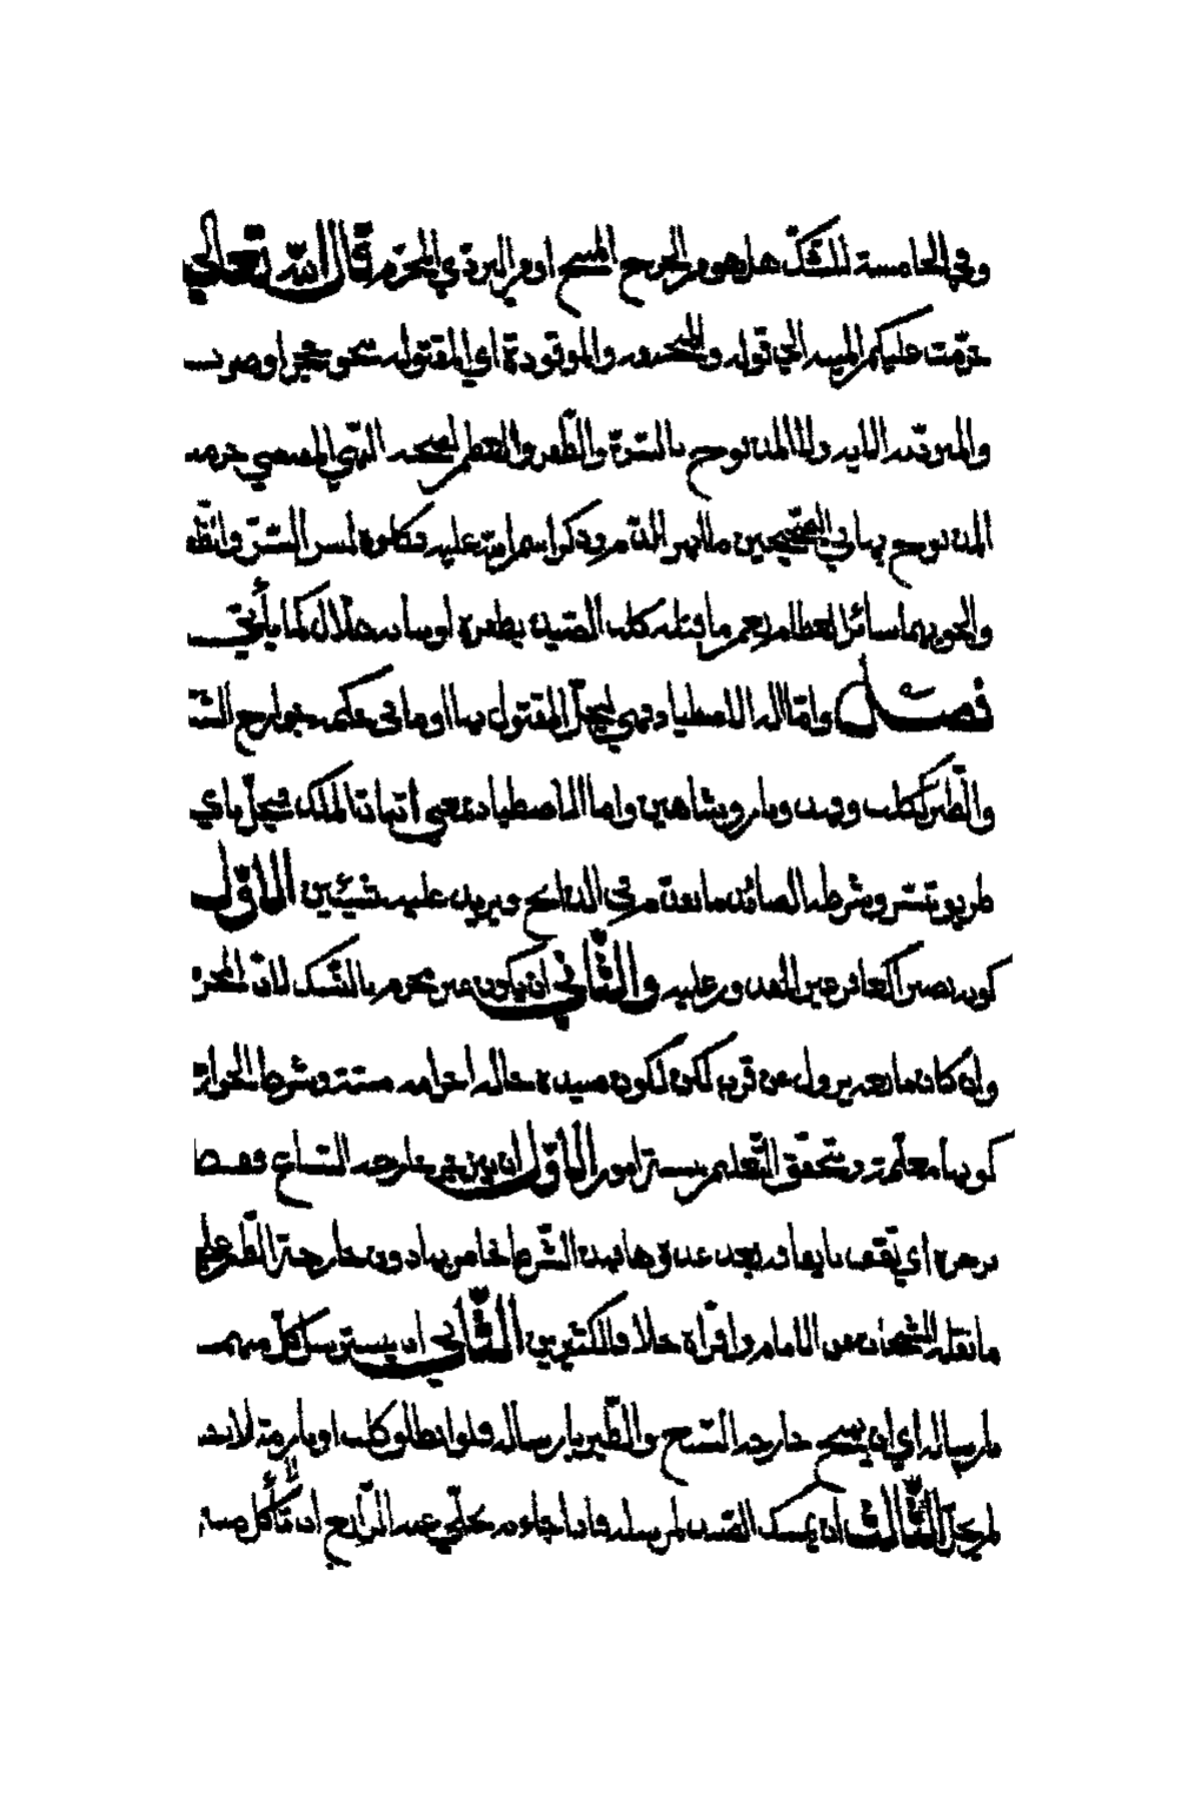 وفي الخامسة للشك هل هو من الجرح المبيح او من التردي المحرم قال الله تعالى
حرمت عليكم الميتة الى قوله والمنخنقة والموقوذة اي المقتولة بنحو حجر او ضرب
والمتردية الاية واما المذبوح بالسن والظفر والعظم لصحة النهي المقتضي حرمة
المذبوح بها في الصحيحين ما انهر الدم وذكر اسم الله عليه فكلوه ليس السن والظفر
والحق بهما سائر العظام نعم ما قتله كلب الصيد بظفره او بنابه حلال كما يأتي
فصل واما آلة الاصطياد فهي ليحل المقتول بها او ما في حكمه جوارح السباع
والطير ككلب وفهد وباز وشاهين واما الاصطياد بمعنى اثبات الملك فيحل باي
طريق تيسر وشرط الصائد ما تقدم في الذابح ويزيد عليه شيئين الاول
كونه بصيرا العاقر عين المقدور عليه والثاني ان يكون غير محرم بالنسك لان المحرم
وان كان مانعه يزول عن قرب لكن لكون صيده حالة احرامه ميتة وشرط الجوارح
كونها معلمة ويتحقق التعليم بستة امور الاول ان ينزجر جارحة السباع بقصد
زجره اي يقف بايقافه بعد عدوه وهذا الشرط خاص بها دون جارحة الطير على
ما نقله الشيخان عن الامام واقراه خلافا لكثيرين الثاني ان يسترسل كل منهما
بارساله اي ان يهيج جارحة السباع والطير بارساله فلو انطلق كلب او باز بنفسه
لم يحل الثالث ان يمسك الصيد لمرسله فاذا جاءه خلى عنه الرابع ان لا يأكل منه